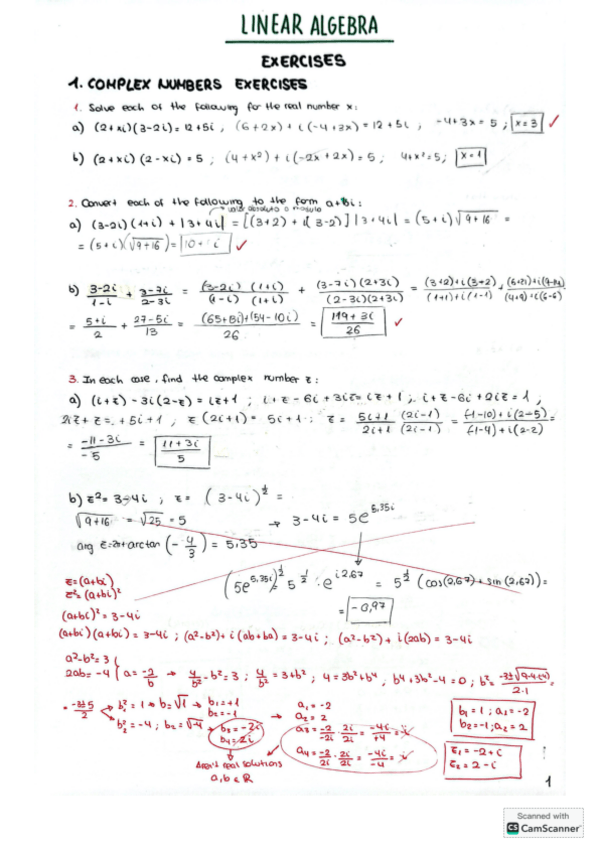 LINEAR ALGEBRA
EXERCISES
1. COMPLEX NUMBERS EXERCISES
1. Solve each of the following for the real number x:
a) (2+xi)(3-2i)=12+5i ; (6+2x)+i(-4+3x)=12+5i ; -4+3x=5 ; x=3 ✓
b) (2+xi)(2-xi)=5 ; (4+x²)+i(-2x+2x)=5 ; 4+x²=5 ; x=1
2. Convert each of the following to the form a+bi:
valor absoluto o módulo
a) (3-2i)(1+i)+|3+4i| = [(3+2)+i(3-2)]|3+4i| = (5+i)√9+16 =
= (5+i)(√9+16) = ✓
b) 3-2i/1-i + 3-7i/2-3i = (3-2i)(1+i)/(1-i)(1+i) + (3-7i)(2+3i)/(2-3i)(2+3i) = (3+2)+i(3-2)/(1+1)+i(1-1) + (6+21)+i(9-14)/(4+9)+i(6-6)
= 5+i/2 + 27-5i/13 = /26 = 119+3i/26 ✓
3. In each case, find the complex number z:
a) (i+z)-3i(2-z)=iz+1 ; i+z-6i+3iz=iz+1 ; i+z-6i+2iz=1 ,
2iz+z=+5i+1 ; z(2i+1)=5i+1 ; z = 5i+1/2i+1 (2i-1)/(2i-1) = (-1-10)+i(2-5)/(-1-4)+i(2-2) =
= -11-3i/-5 = 11+3i/5
b) z²=3-4i ; z=(3-4i)^½ =
√9+16 = √25 = 5 → 3-4i = 5e^5,35i
arg z= arctan(-4/3) = 5,35
(5e^5,35i)^½ = 5^½ · e^i2,67 = 5^½ (cos(2,67)+sin(2,67)) =
= -0,97
z=(a+bi)
z²=(a+bi)²
(a+bi)²=3-4i
(a+bi)(a+bi)=3-4i ; (a²-b²)+i(ab+ba)=3-4i ; (a²-b²)+i(2ab)=3-4i
a²-b²=3
2ab=-4 { a=-2/b → 4/b²-b²=3 ; 4/b²=3+b² ; 4=3b²+b⁴ ; b⁴+3b²-4=0 ; b²=
-3±5/2 → b₁²=1 → b=√1 → b₁=+1 b₂=-1
b₂²=-4 ; b₂=√-4 → b₃=-2i b₄=2i
a₁=-2
a₂=2
a₃= -2/-2i · 2i/2i = -4i/+4 = -i
a₄= -2/2i · 2i/2i = -4i/-4 =
Aren't real solutions
a,b∈ℝ
b₁=1 ; a₁=-2
b₂=-1 ; a₂=2
z₁=-2+i
z₂=2-i
1
Scanned with
CS CamScanner